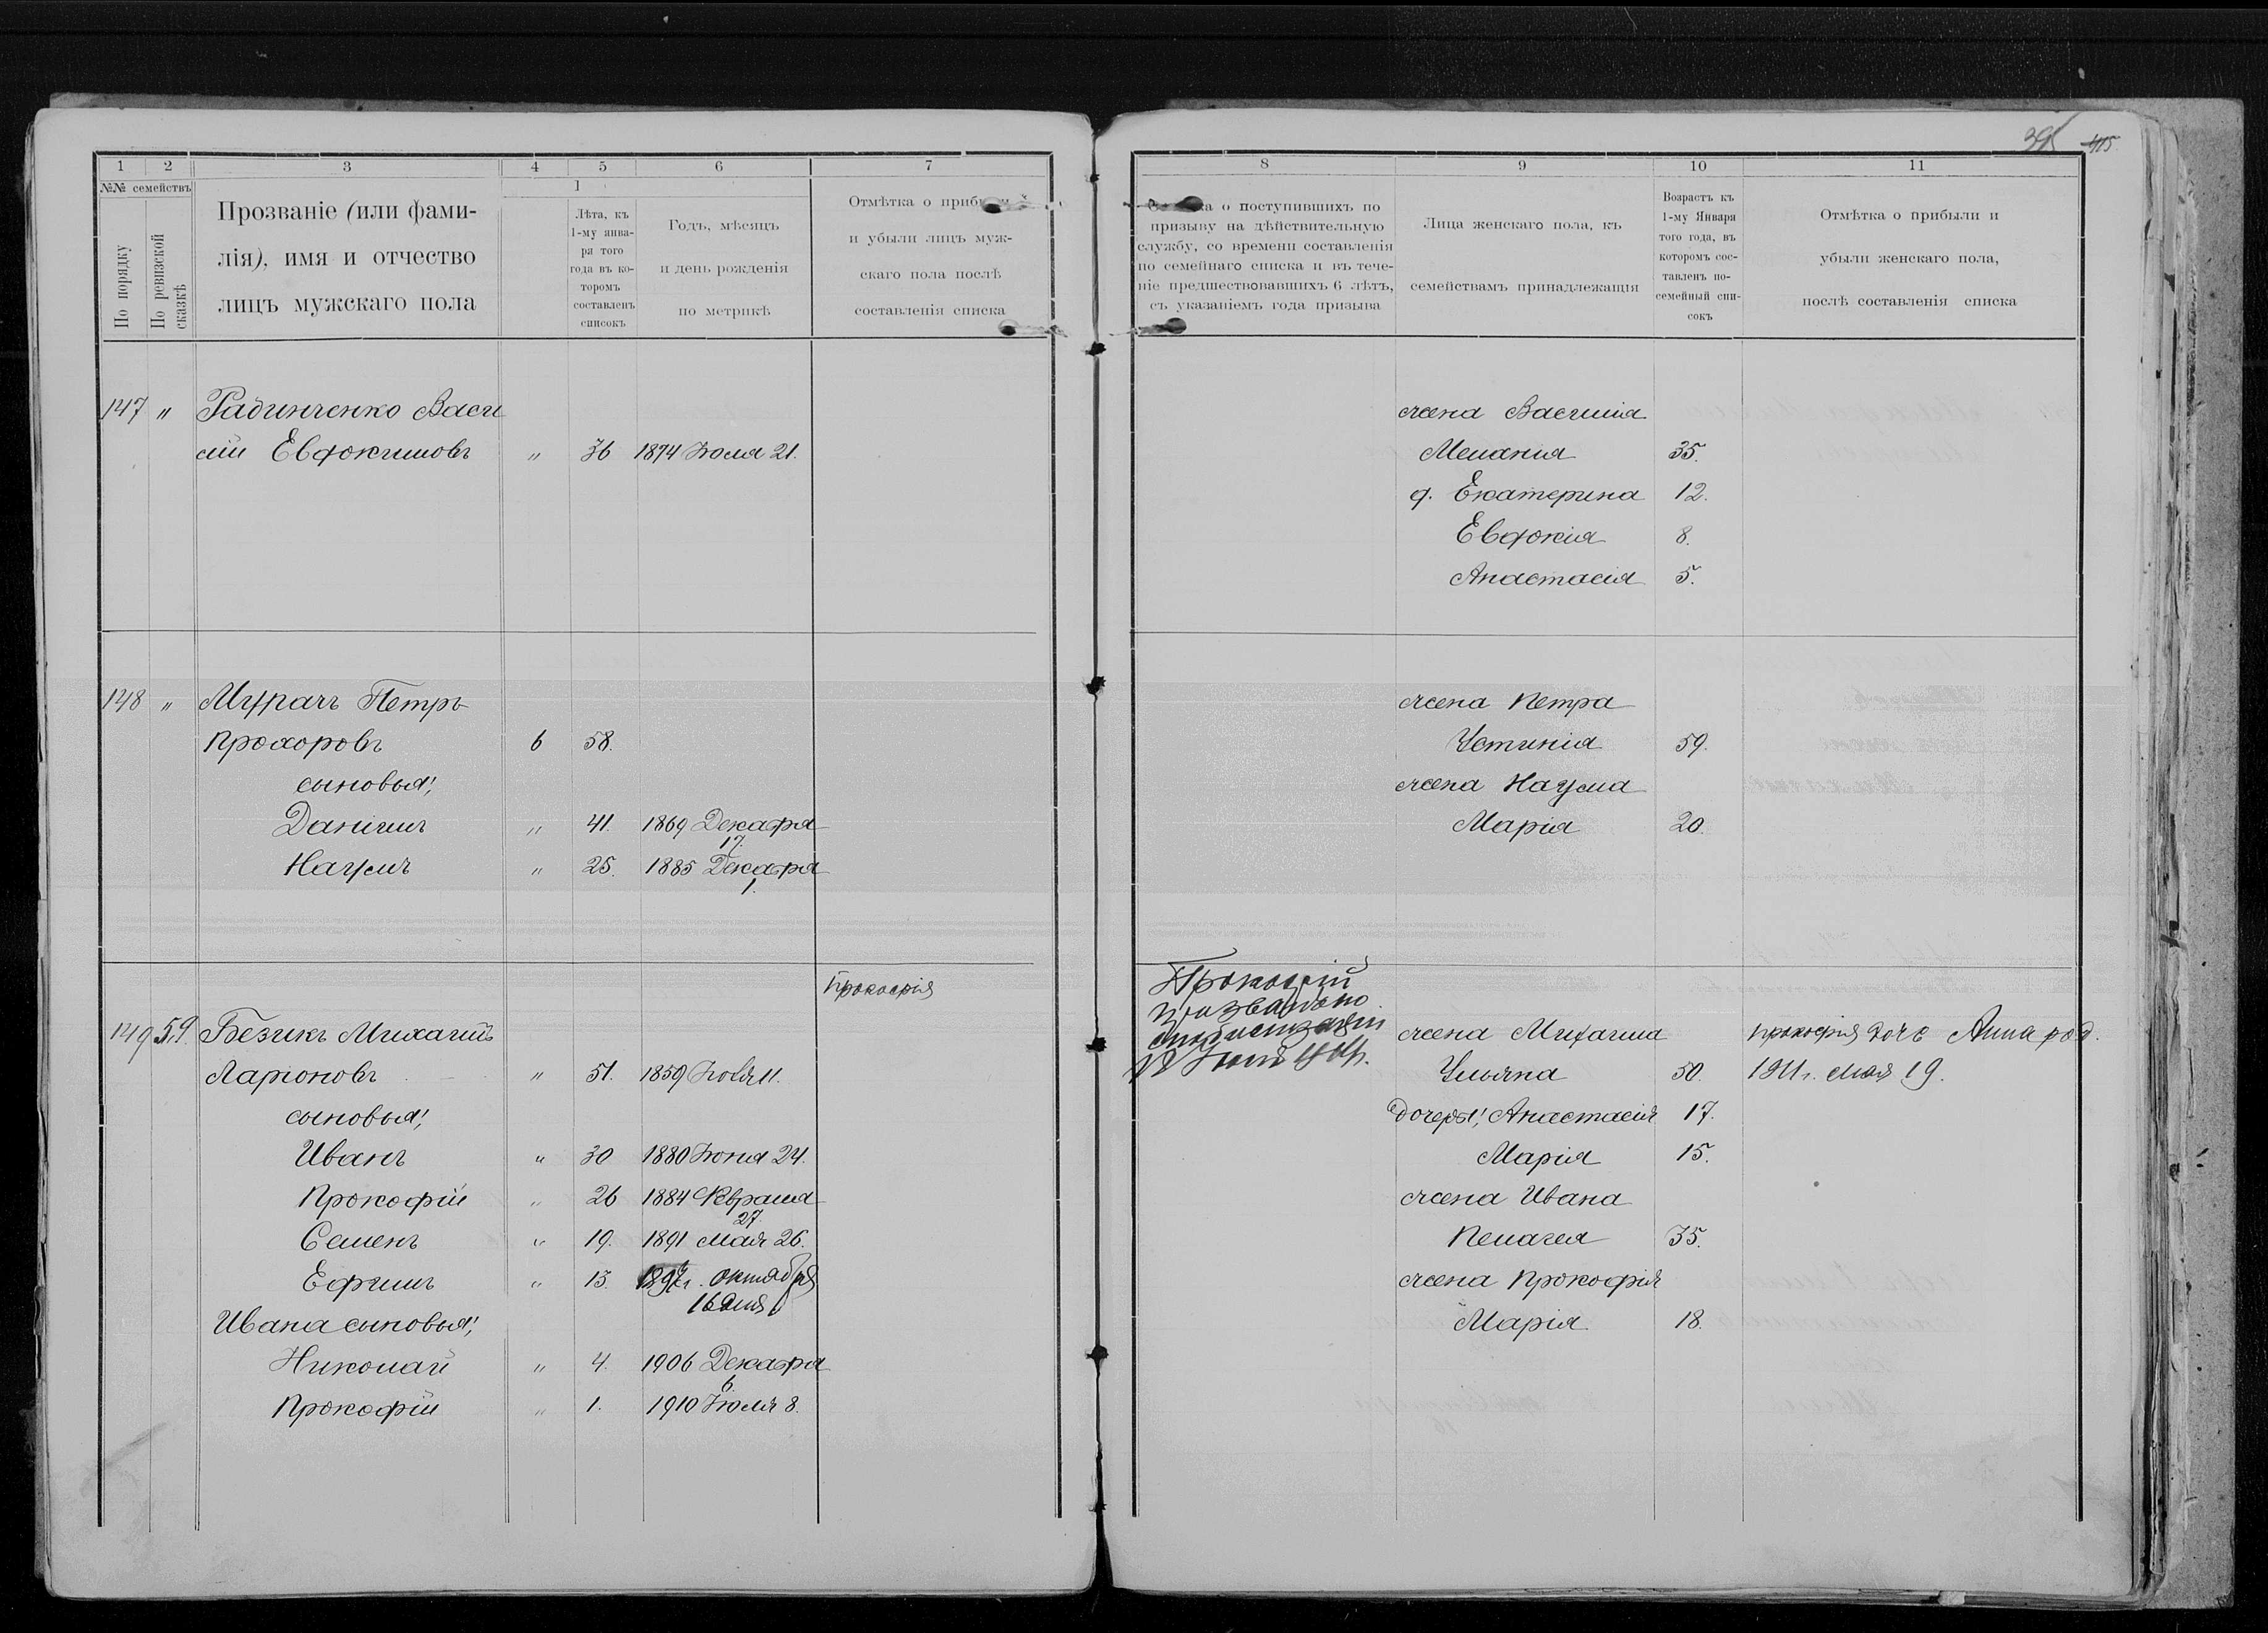 395 415
1 2 3 4 5 6 7
№№ семействъ
По порядку
По ревизской сказкѣ
Прозваніе (или фами-
лія), имя и отчество
лицъ мужскаго пола
Лѣта, къ
1-му янва-
ря того
года въ ко-
торомъ
составленъ
списокъ
Годъ, мѣсяцъ
и день рожденія
по метрикѣ
Отмѣтка о
и убыли лицъ муж-
скаго пола послѣ
составленія списка
147 " Радинченко Васи
лій Евдокимовъ " 36 1874 Іюля 21.
148 " Мурачъ Петръ
Прохоровъ 6 58.
сыновья:
Даніилъ " 41. 1869 Декабря
17.
Наумъ " 25. 1885 Декабря
1.
Прокофія
149 59. Безикъ Михаилъ
Ларіоновъ " 51. 1859 Ноябя 11.
сыновья:
Иванъ " 30 1880 Іюня 24.
Прокофій " 26 1884 Февраля
27.
Семенъ " 19. 1891 Мая 26.
Ефимъ " 13. 1897г. Октября
16 дня
Ивана сыновья:
Николай " 4. 1906 Декабря
6.
Прокофій " 1. 1910 Іюля 8.
8 9 10 11
о поступившихъ по
призыву на дѣйствительную
службу, со времени составленія
по семейнаго списка и въ тече-
ніе предшествовавшихъ 6 лѣтъ,
съ указаніемъ года призыва
Лица женскаго пола, къ
семействамъ принадлежащія
Возрастъ къ
1-му Января
того года, въ
которомъ сос-
тавленъ по-
семейный спи-
сокъ
Отмѣтка о прибыли и
убыли женскаго пола,
послѣ составленія списка
жена Василія
Меланія 35.
д. Екатерина 12.
Евдокія 8.
Анастасія 5.
жена Петра
Устинія 59.
жена Наума
Марія 20.
Прокофій
призванъ по
мобилизаціи
жена Михаила Прокофія дочь Анна род.
Ульяна 50. 1911г. мая 19.
Дочеря: Анастасія 17.
Марія 15.
жена Ивана
Пелагея 35.
жена Прокофія
Марія 18.